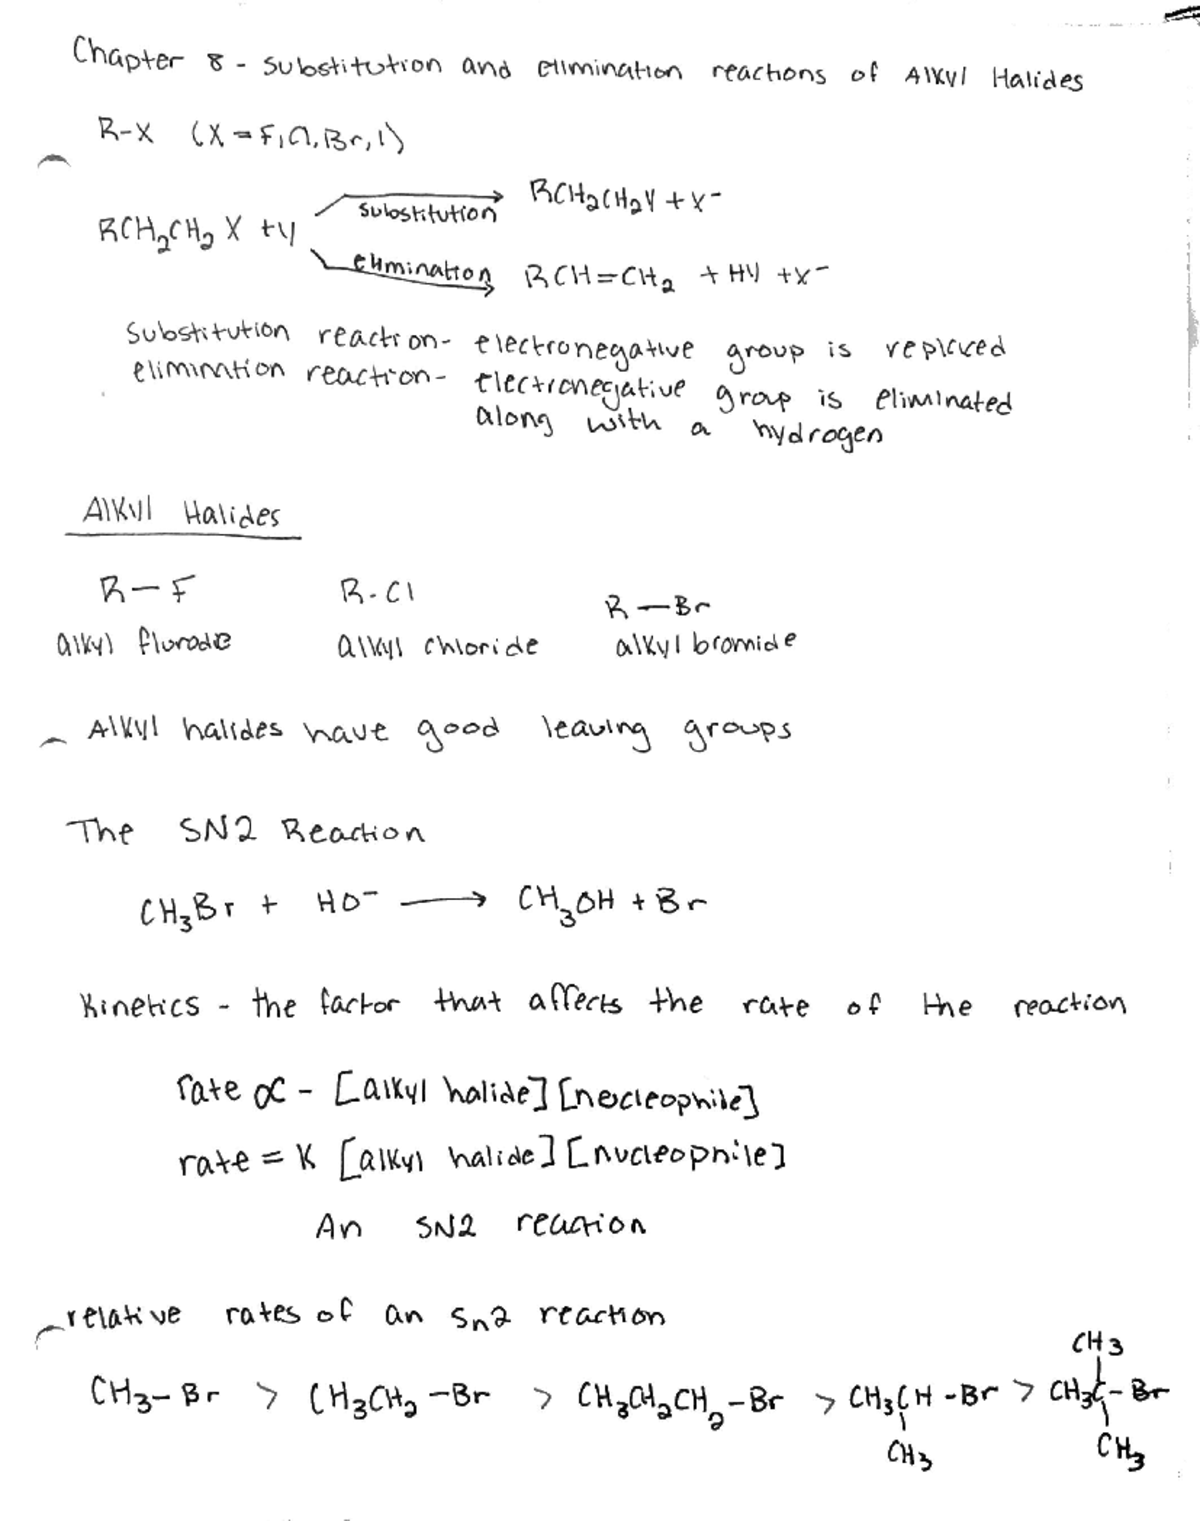 Chapter 8 - Substitution and elimination reactions of Alkyl Halides
R-X (X = F, Cl, Br, I)
RCH2CH2X + Y
substitution RCH2CH2Y + X-
elimination RCH=CH2 + HY + X-
Substitution reaction - electronegative group is replaced
elimination reaction - electronegative group is eliminated
along with a hydrogen
Alkyl Halides
R-F R-Cl R-Br
alkyl fluroде alkyl chloride alkyl bromide
Alkyl halides have good leaving groups
The SN2 Reaction
CH3Br + HO- → CH3OH + Br
Kinetics - the factor that affects the rate of the reaction
rate ∝ - [alkyl halide] [necleophile]
rate = K [alkyl halide] [nucleophile]
An SN2 reaction
relative rates of an Sn2 reaction
CH3
CH3-Br > CH3CH2-Br > CH3CH2CH2-Br > CH3CH-Br > CH3C-Br
CH3 CH3